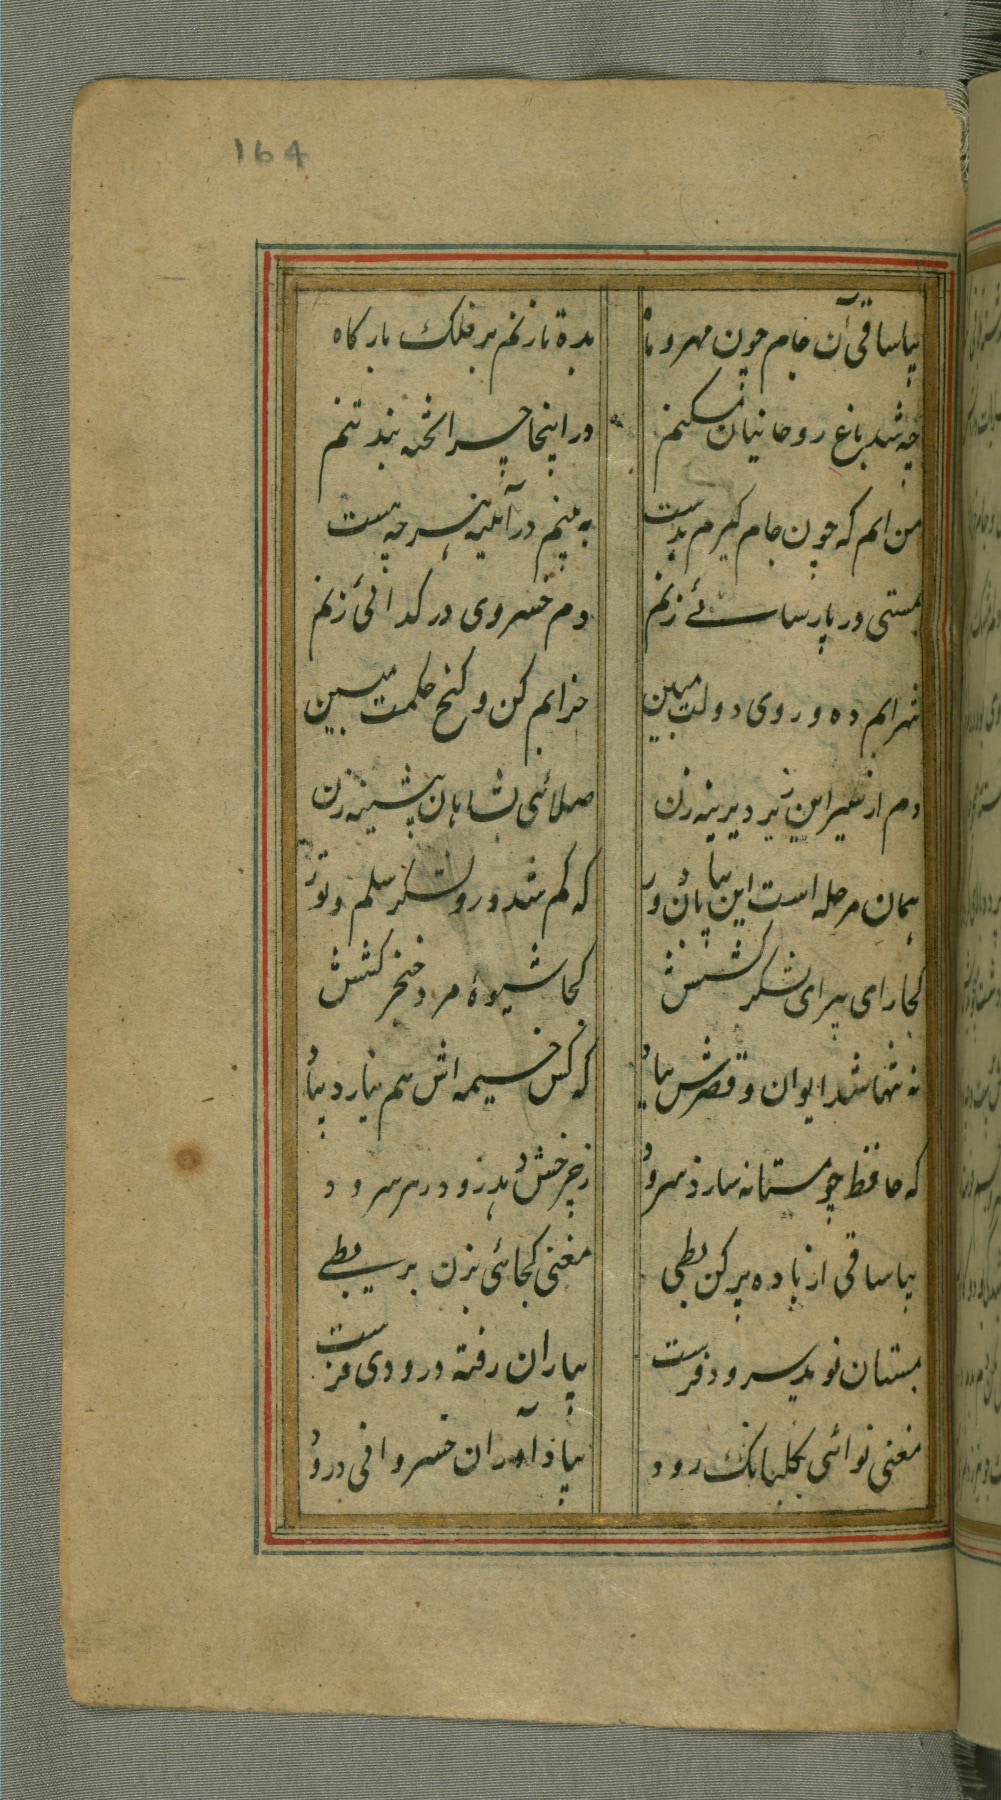 164
بیا ساقی آن جام چون مهر و ماه
بده تا زنم بر فلک بارگاه
چه شد باغ روحانیان مسکنم
در اینجا چرا تخته بند تنم
من انم که چون جام گیرم بدست
به بینم در آیینه هر چه هست
بمستی در پارسائے زنم
دم خسروی در کدائی زنم
شرابم ده و روی دولت ببین
خرابم کن و کنج حکمت ببین
دم از سیر این دیر دیرینه زن
صلائی شاهان پیشینه زن
همان مرحله است این بیابان دور
که کم شد درو لشکر سلم و تور
کجا رای پیران لشکر کشش
کجا شیوۀ مرد خنجر کشش
نه تنها شد ایوان و قصرش بباد
که کس خیمه اش هم نیارد بیاد
که حافظ چو مستانه سازد سرود
ز چرخش دهد زود درهر سرود
بیا ساقی از باده پر کن بطی
مغنی کجائی بزن بربطے
بمستان نوید سرود فرست
بیاران رفته درودی فرست
مغنی نوائی بکلبانک رود
بیاد آور ان خسروانی درود